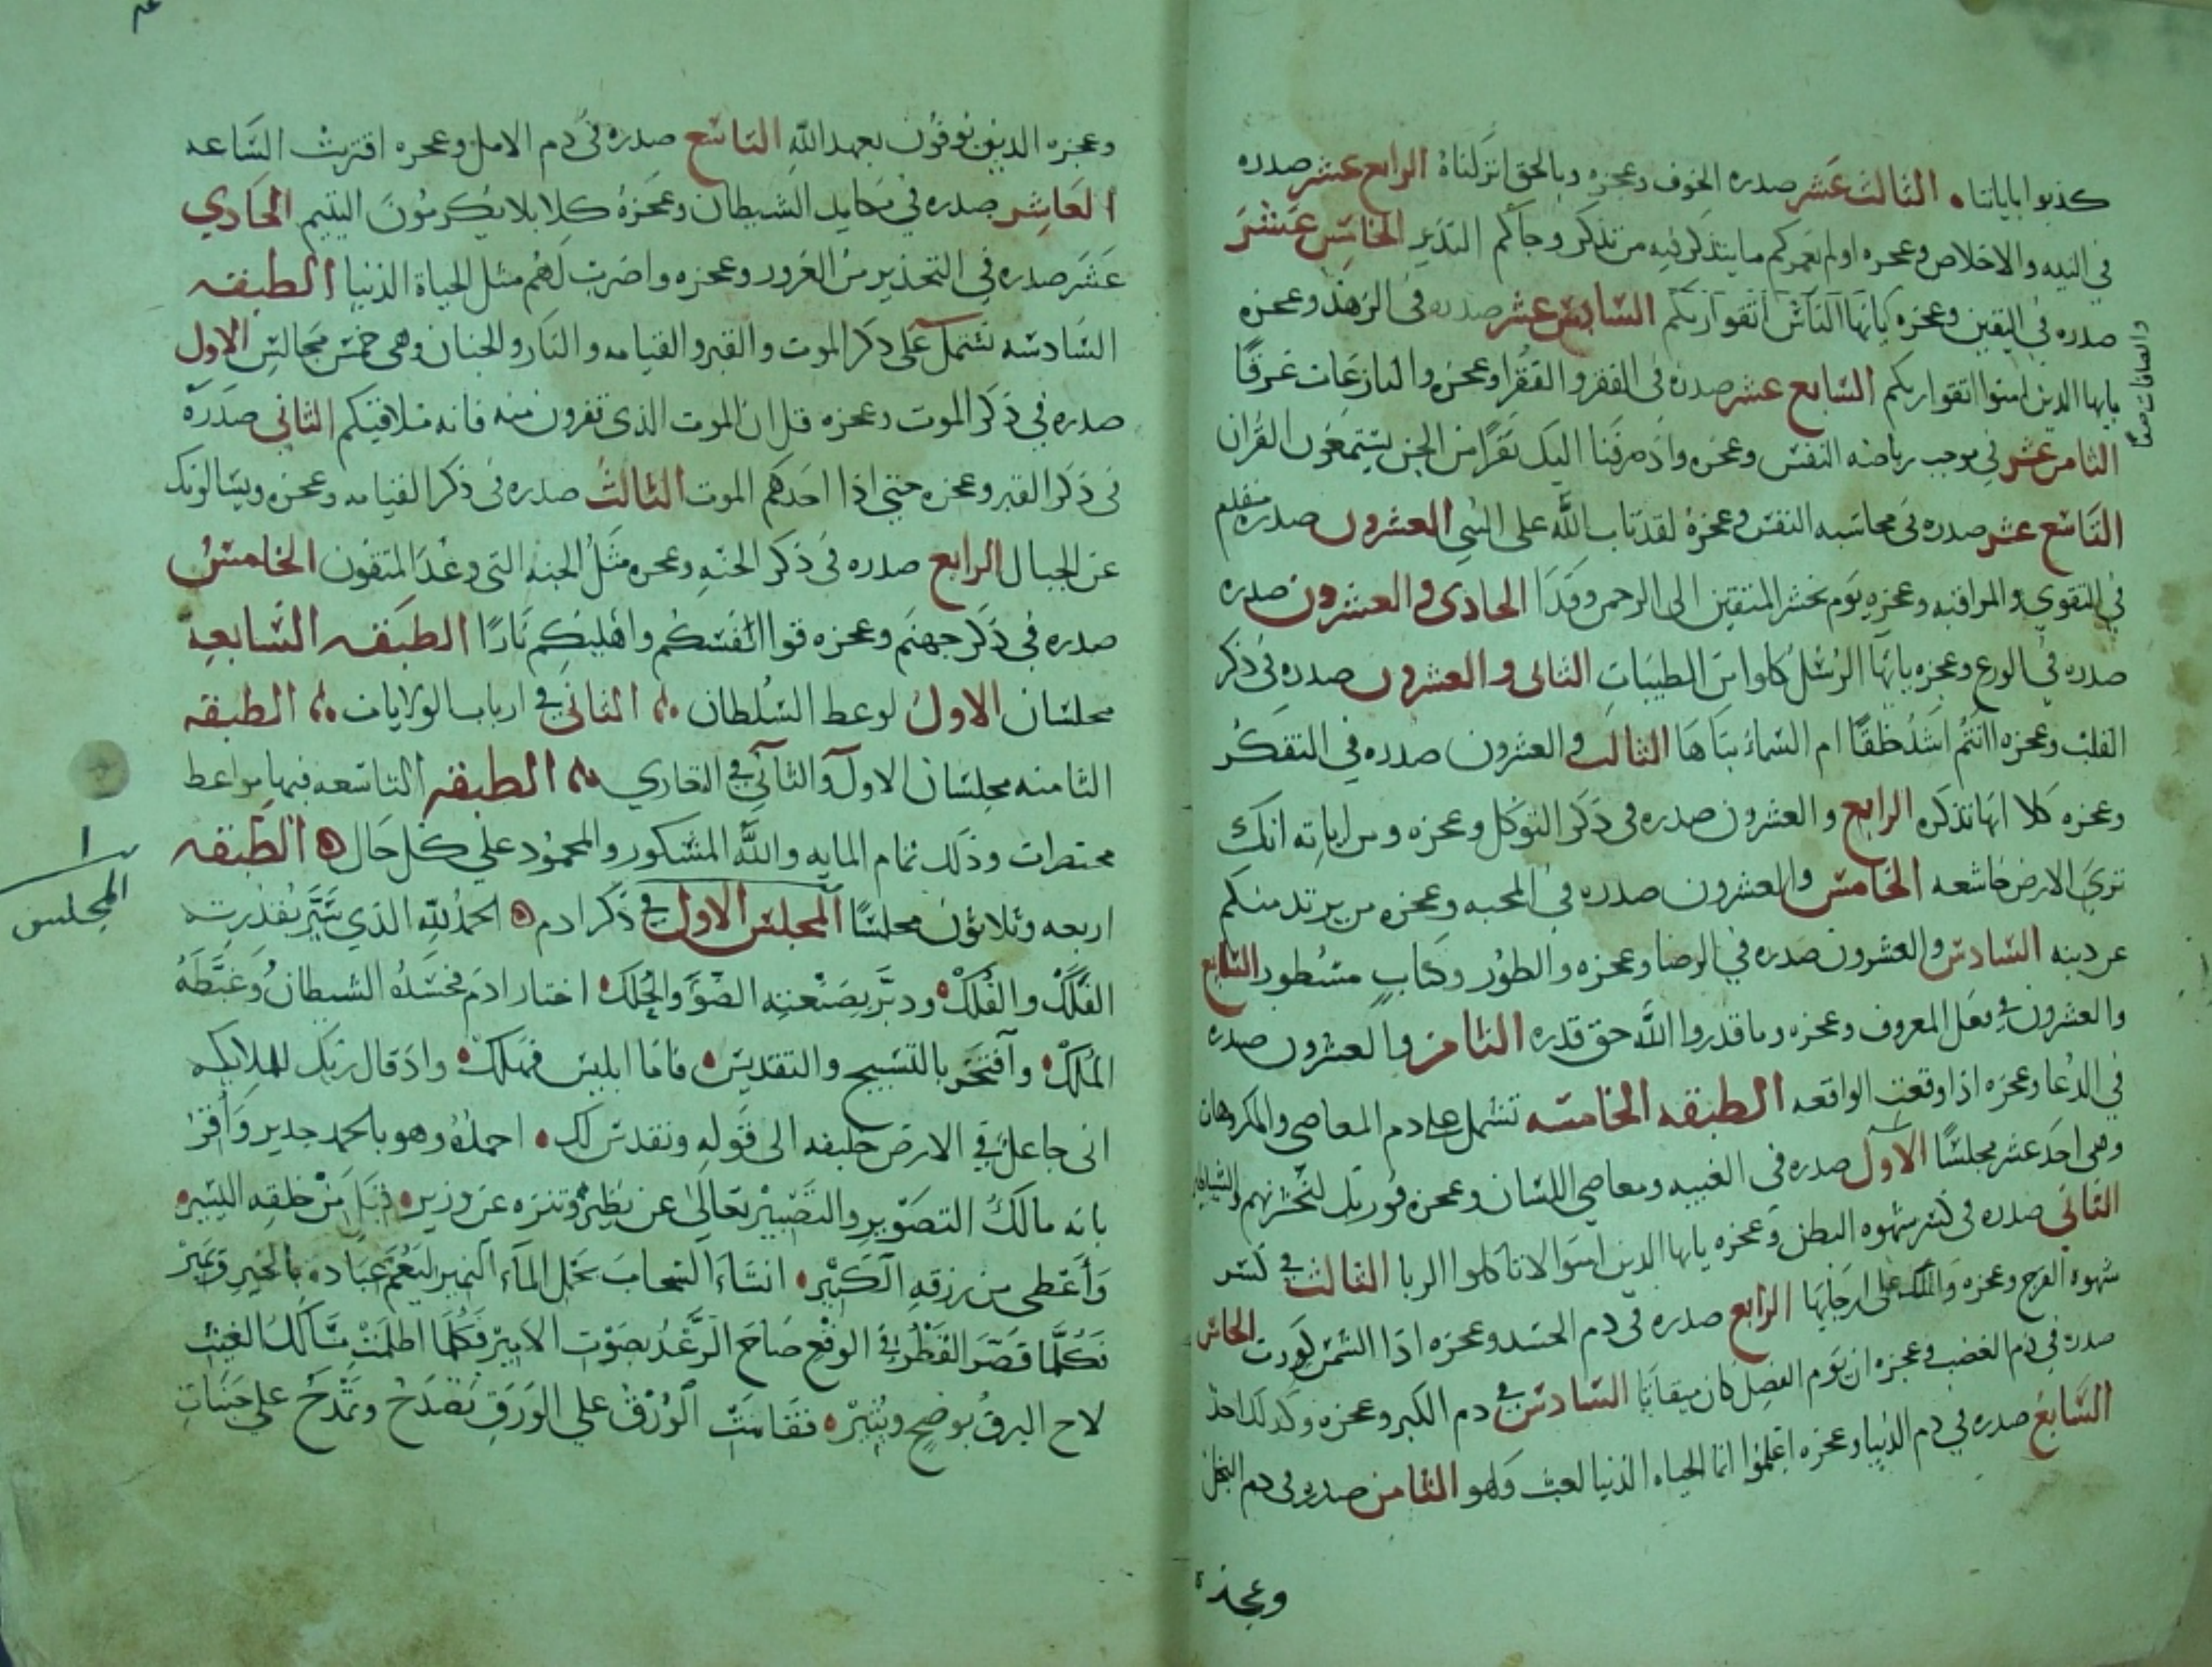 كذبوا باياتنا • الثالث عشر صدره الخوف وعجزه وبالحق انزلناه الرابع عشر صدره
في النيه والاخلاص وعجزه اولم نعمركم ما يتذكر فيه من تذكر وجاكم النذير الخامس عشر
صدره في اليقين وعجزه يا ايها الناس اتقوا ربكم السادس عشر صدره في الزهد وعجزه
والصافات صفا
يايها الذين امنوا اتقوا ربكم السابع عشر صدره في الفقر والفقرا وعجزه والنازعات غرقا
الثامن عشر في موجب رياضه النفس وعجزه واذ صرفنا اليك نفرا من الجن يستمعون القران
التاسع عشر صدره في محاسبه النفس وعجزه لقد تاب الله على النبي العشرون صدره
في التقوي والمراقبه وعجزه يوم نحشر المتقين الى الرحمن وفدا الحادى والعشرون صدره
صدره في الورع وعجزه يايها الرسل كلوا من الطيبات الثانى والعشرون صدره في ذكر
القلب وعجزه اانتم اشد خلقا ام السماء بناها الثالث والعشرون صدره في التفكر
وعجزه كلا انها تذكره الرابع والعشرون صدره في ذكر التوكل وعجزه ومن اياته انك
تري الارض خاشعه الخامس والعشرون صدره في المحبه وعجزه من يرتد منكم
عن دينه السادس والعشرون صدره في الرضا وعجزه والطور وكتاب مسطور السابع
والعشرون في فعل المعروف وعجزه وما قدروا الله حق قدره الثامن والعشرون صدره
في الدعا وعجزه اذا وقعت الواقعه الطبقه الخامسه تشتمل على دم المعاصي والمكروهات
وهي احد عشر مجلسا الاول صدره في الغيبه ومعاصي اللسان وعجزه فوربك لنحشرنهم والشياطين
الثاني صدره في كسر شهوه البطن وعجزه يايها الذين امنوا لا تاكلوا الربا الثالث في كسر
شهوه الفرج وعجزه والملك على ارجايها الرابع صدره في دم الحسد وعجزه اذا الشمس كورت الخامس
صدره في ذم الغضب وعجزه ان يوم الفصل كان ميقاتا السادس في دم الكبر وعجزه وكذلك اخذ
السابع صدره في دم الدنيا وعجزه اعلموا انما الحياه الدنيا لعب ولهو الثامن صدره في دم البخل
وعجزه
وعجزه الدين يوفون بعهد الله التاسع صدره في دم الامل وعجزه اقتربت الساعه
العاشر صدره في مكايد الشيطان وعجزه كلا بل لا يكرمون اليتيم الحادي
عشر صدره في التحذير من الغرور وعجزه واضرب لهم مثل الحياة الدنيا الطبقه
السادسه تشتمل على ذكر الموت والقبر والقيامه والنار والجنان وهي خمس مجالس الاول
صدره في ذكر الموت وعجزه قل ان الموت الذى تفرون منه فانه ملاقيكم الثاني صدره
في ذكر القبر وعجزه حتي اذا احدكم الموت الثالث صدره في ذكر القيامه وعجزه ويسالونك
عن الجبال الرابع صدره في ذكر الجنه وعجزه مثل الجنه التي وعد المتقون الخامس
صدره في ذكر جهنم وعجزه قوا انفسكم واهليكم نارا الطبقه السابعه
مجلسان الاول لوعظ السلطان الثاني في ارباب الولايات الطبقه
الثامنه مجلسان الاول والثاني في التعازي الطبقه التاسعه فيها مواعظ
مختصرات وذلك تمام المايه والله المشكور والمحمود علي كل حال الطبقه
اربعه وثلاثون مجلسا المجلس الاول في ذكر ادم الحمد لله الذي سير بقدرته
١
المجلس
الفلك والفلك ودبر بصنعته الضو والحلك اختار ادم فحسده الشيطان وغبطه
الملك وافتخر بالتسبيح والتقديس فاما ابليس فهلك واذ قال ربك للملايكه
انى جاعل في الارض خليفه الى قوله ونقدس لك احمده وهو بالحمد جدير واقر
بانه مالك التصوير والتصيير تعالى عن نظير وتنزه عن وزير من خلقه اليسير
واعطى من رزقه الكثير انشاء السحاب يحمل الماء النمير ليعم عباده بالخير ويمير
فكلما قصر القطر في الوقع صاح الرعد بصوت الامير فكلما اظلمت مسالك الغيث
لاح البرق يوضح وينير فقامت الورق علي الورق تصدح وتمدح علي جنبات